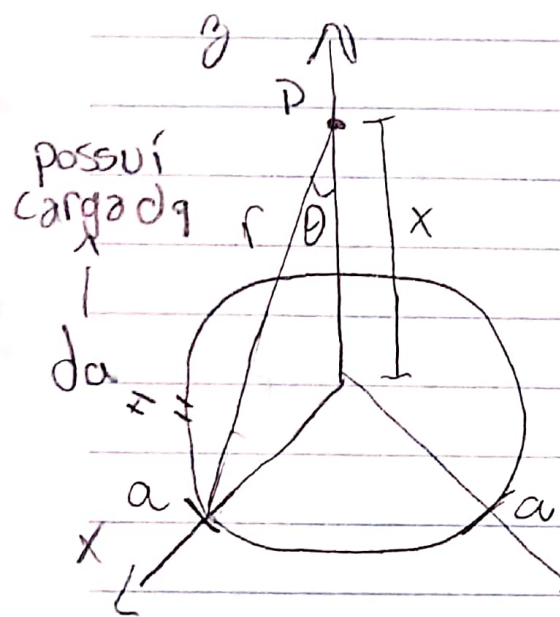 z
P
possuí
carga dq
r θ x
da
a a
x